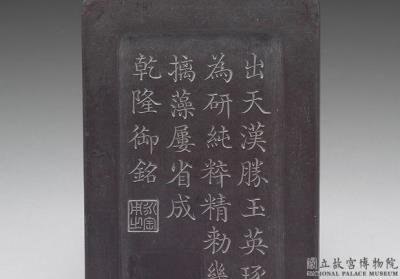 出天漢勝玉英琢
為研純粹精勑幾
摛藻屢省成
乾隆御銘
國立故宮博物院
NATIONAL PALACE MUSEUM